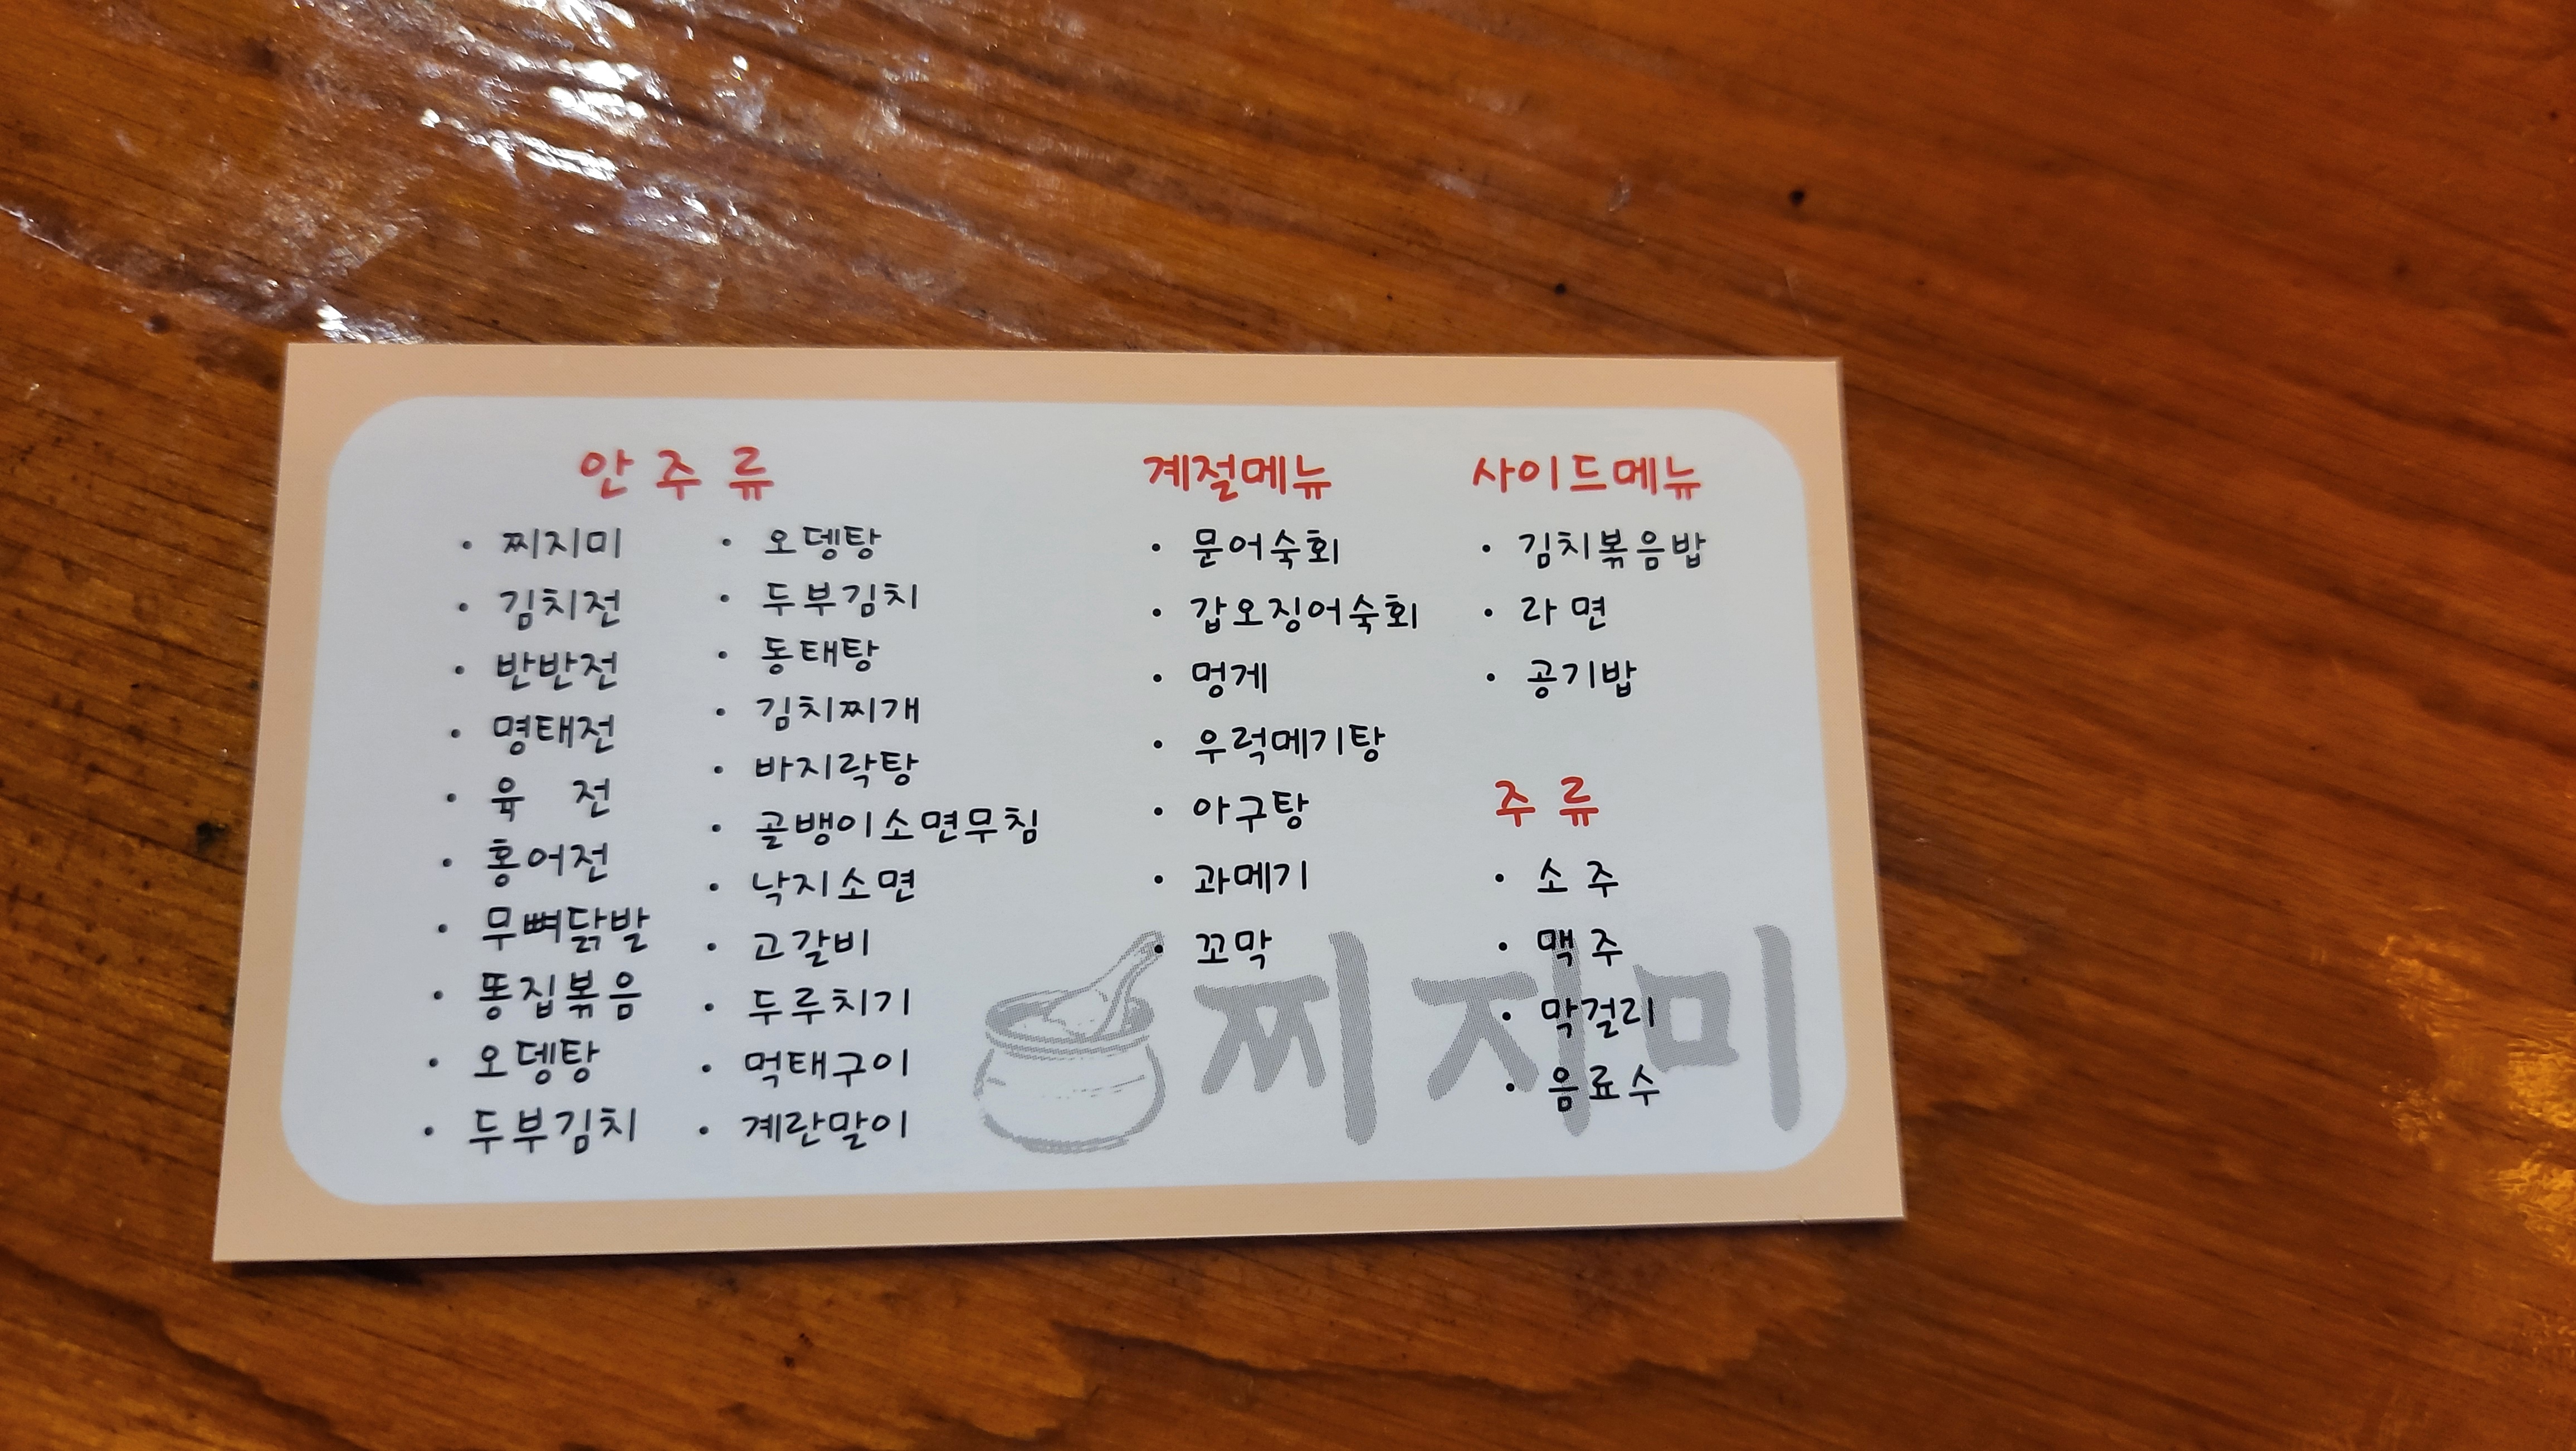 안 주 류
· 찌지미
· 김치전
· 반반전
· 명태전
· 육 전
· 홍어전
· 무뼈닭발
· 똥집볶음
· 오뎅탕
· 두부김치
· 오뎅탕
· 두부김치
· 동태탕
· 김치찌개
· 바지락탕
· 골뱅이소면무침
· 낙지소면
· 고갈비
· 두루치기
· 먹태구이
· 계란말이
계절메뉴
· 문어숙회
· 갑오징어숙회
· 멍게
· 우럭메기탕
· 아구탕
· 과메기
· 꼬막
사이드메뉴
· 김치볶음밥
· 라 면
· 공기밥
주 류
· 소 주
· 맥 주
· 막걸리
· 음료수
찌지미